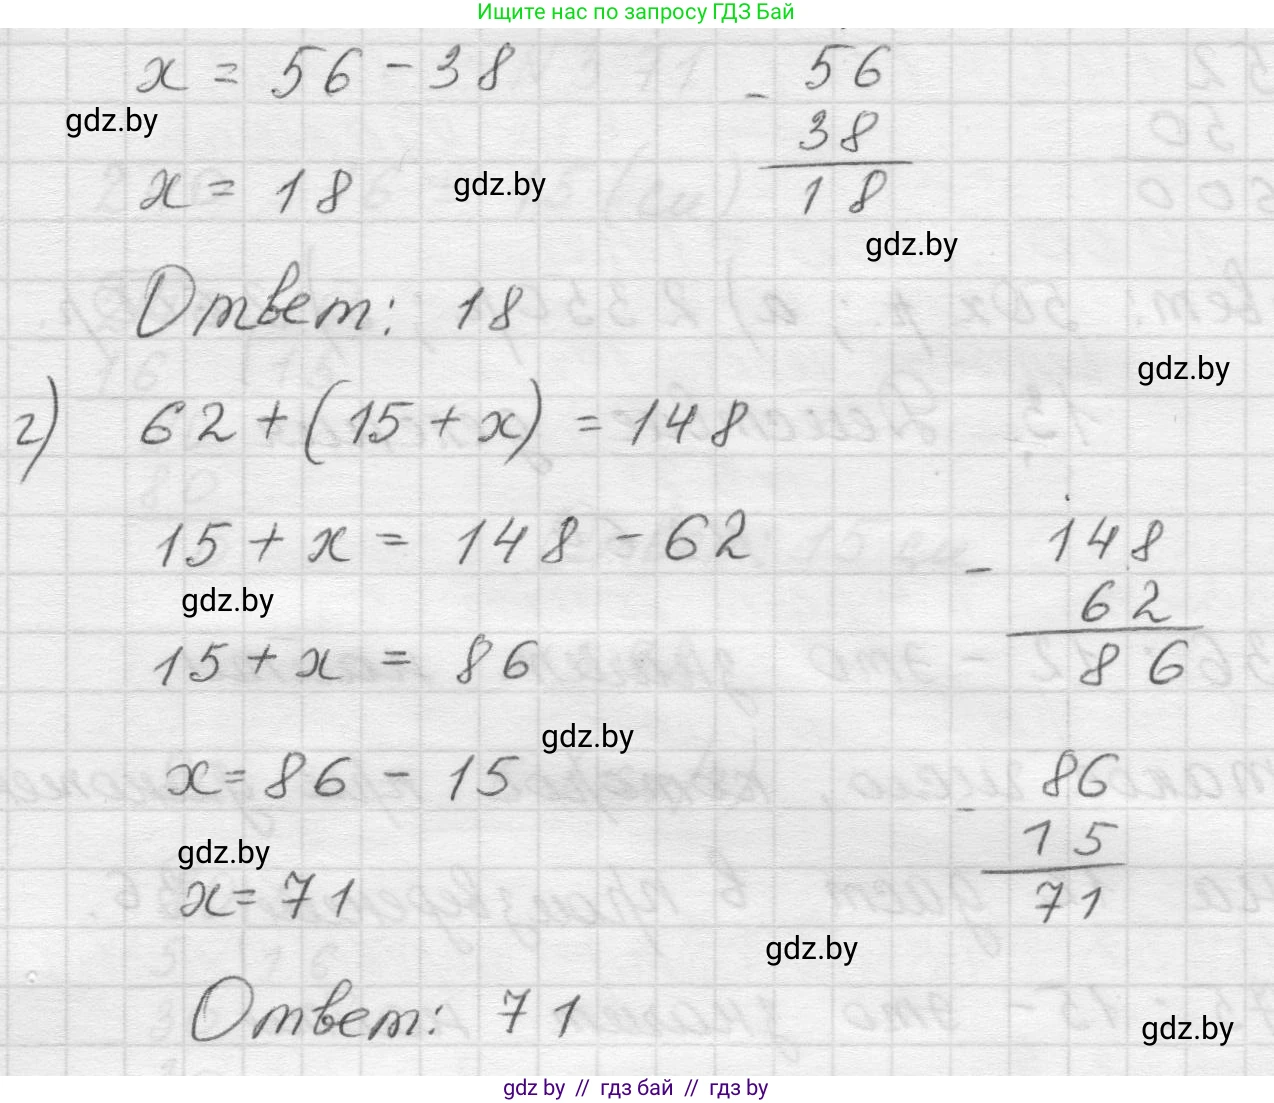 Ищите нас по запросу ГДЗ Бай
x = 56 - 38
- 56
gdz.by
38
x = 18
gdz.by
18
gdz.by
Ответ: 18
gdz.by
г) 62 + (15 + x) = 148
15 + x = 148 - 62
- 148
gdz.by
62
15 + x = 86
86
gdz.by
x = 86 - 15
- 86
gdz.by
15
x = 71
71
gdz.by
Ответ: 71
gdz.by
gdz by // гдз бай // гдз by